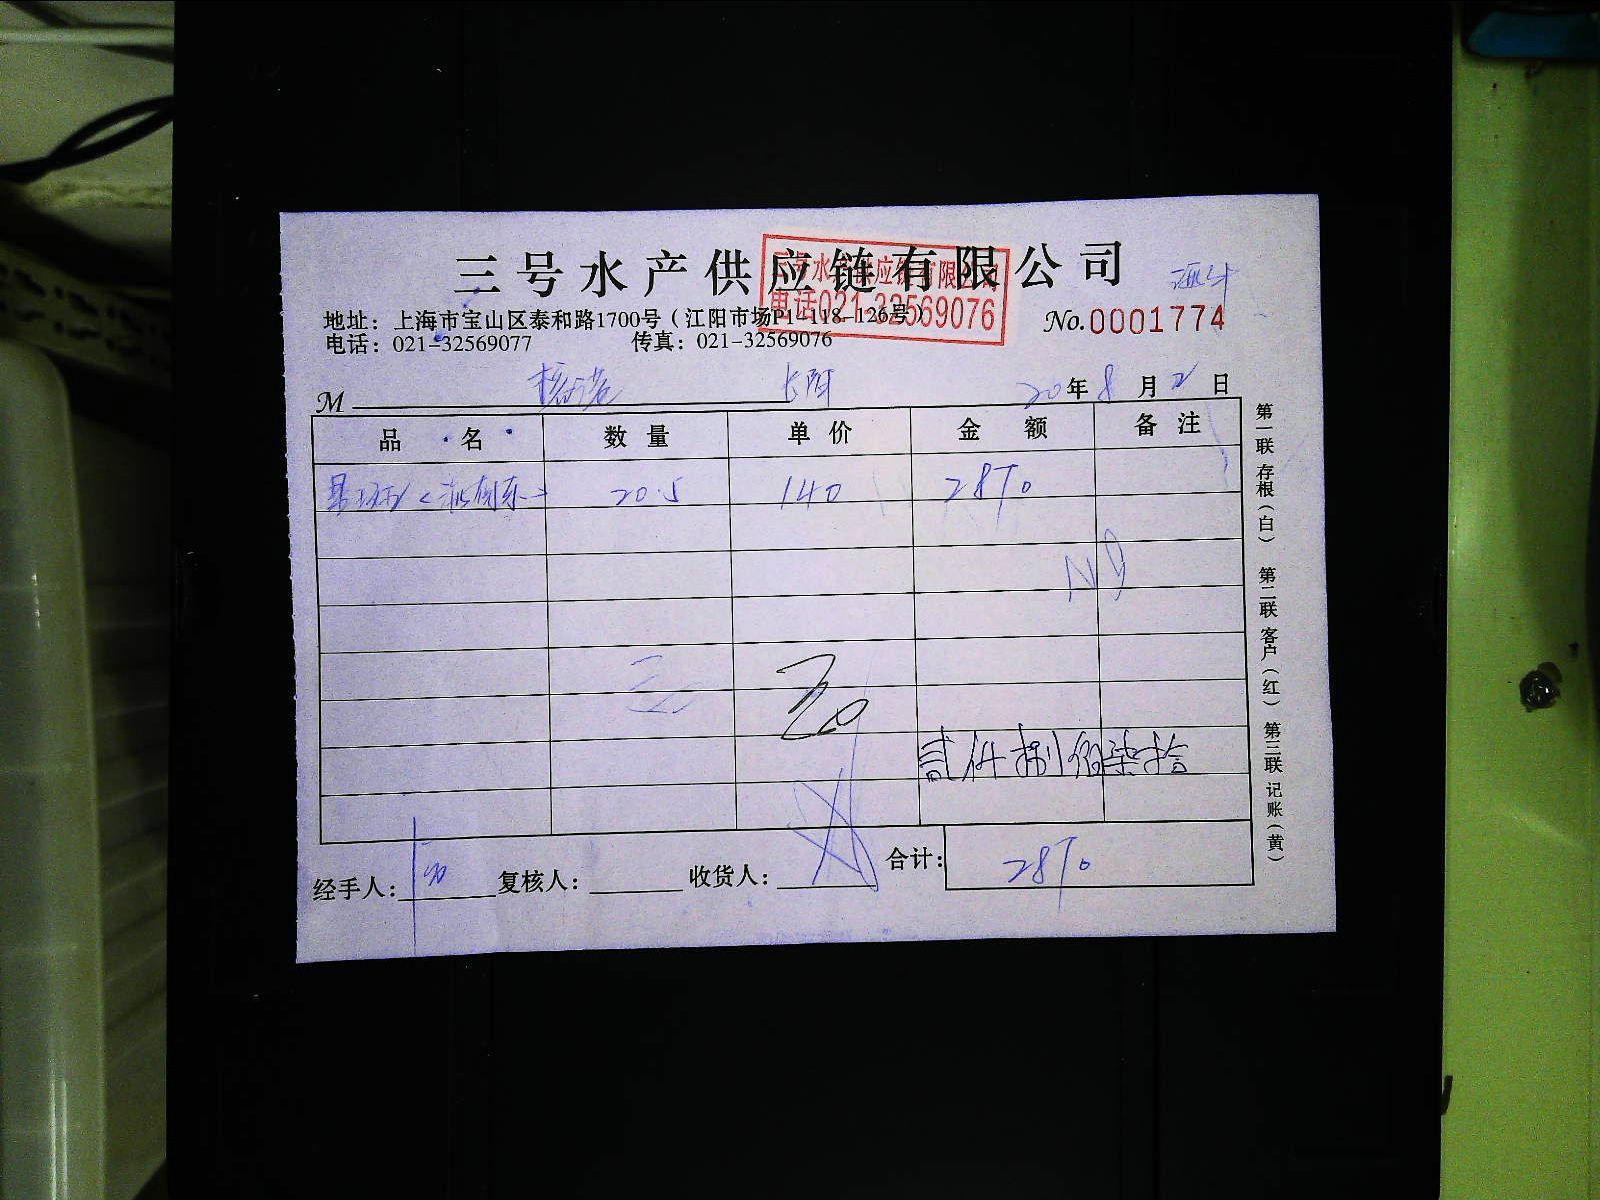 三号水产供应链有限公司
三号水产供应链有限公司
电话021-32569076
地址：上海市宝山区泰和路1700号（江阳市场P1-118-126号）
No.0001774
电话：021-32569077 传真：021-32569076
M 长阳 20年8月2日
品名 数量 单价 金额 备注
20.5 140 2870
贰仟捌佰柒拾
经手人： 复核人： 收货人： 合计： 2870
第一联存根（白） 第二联客户（红） 第三联记账（黄）